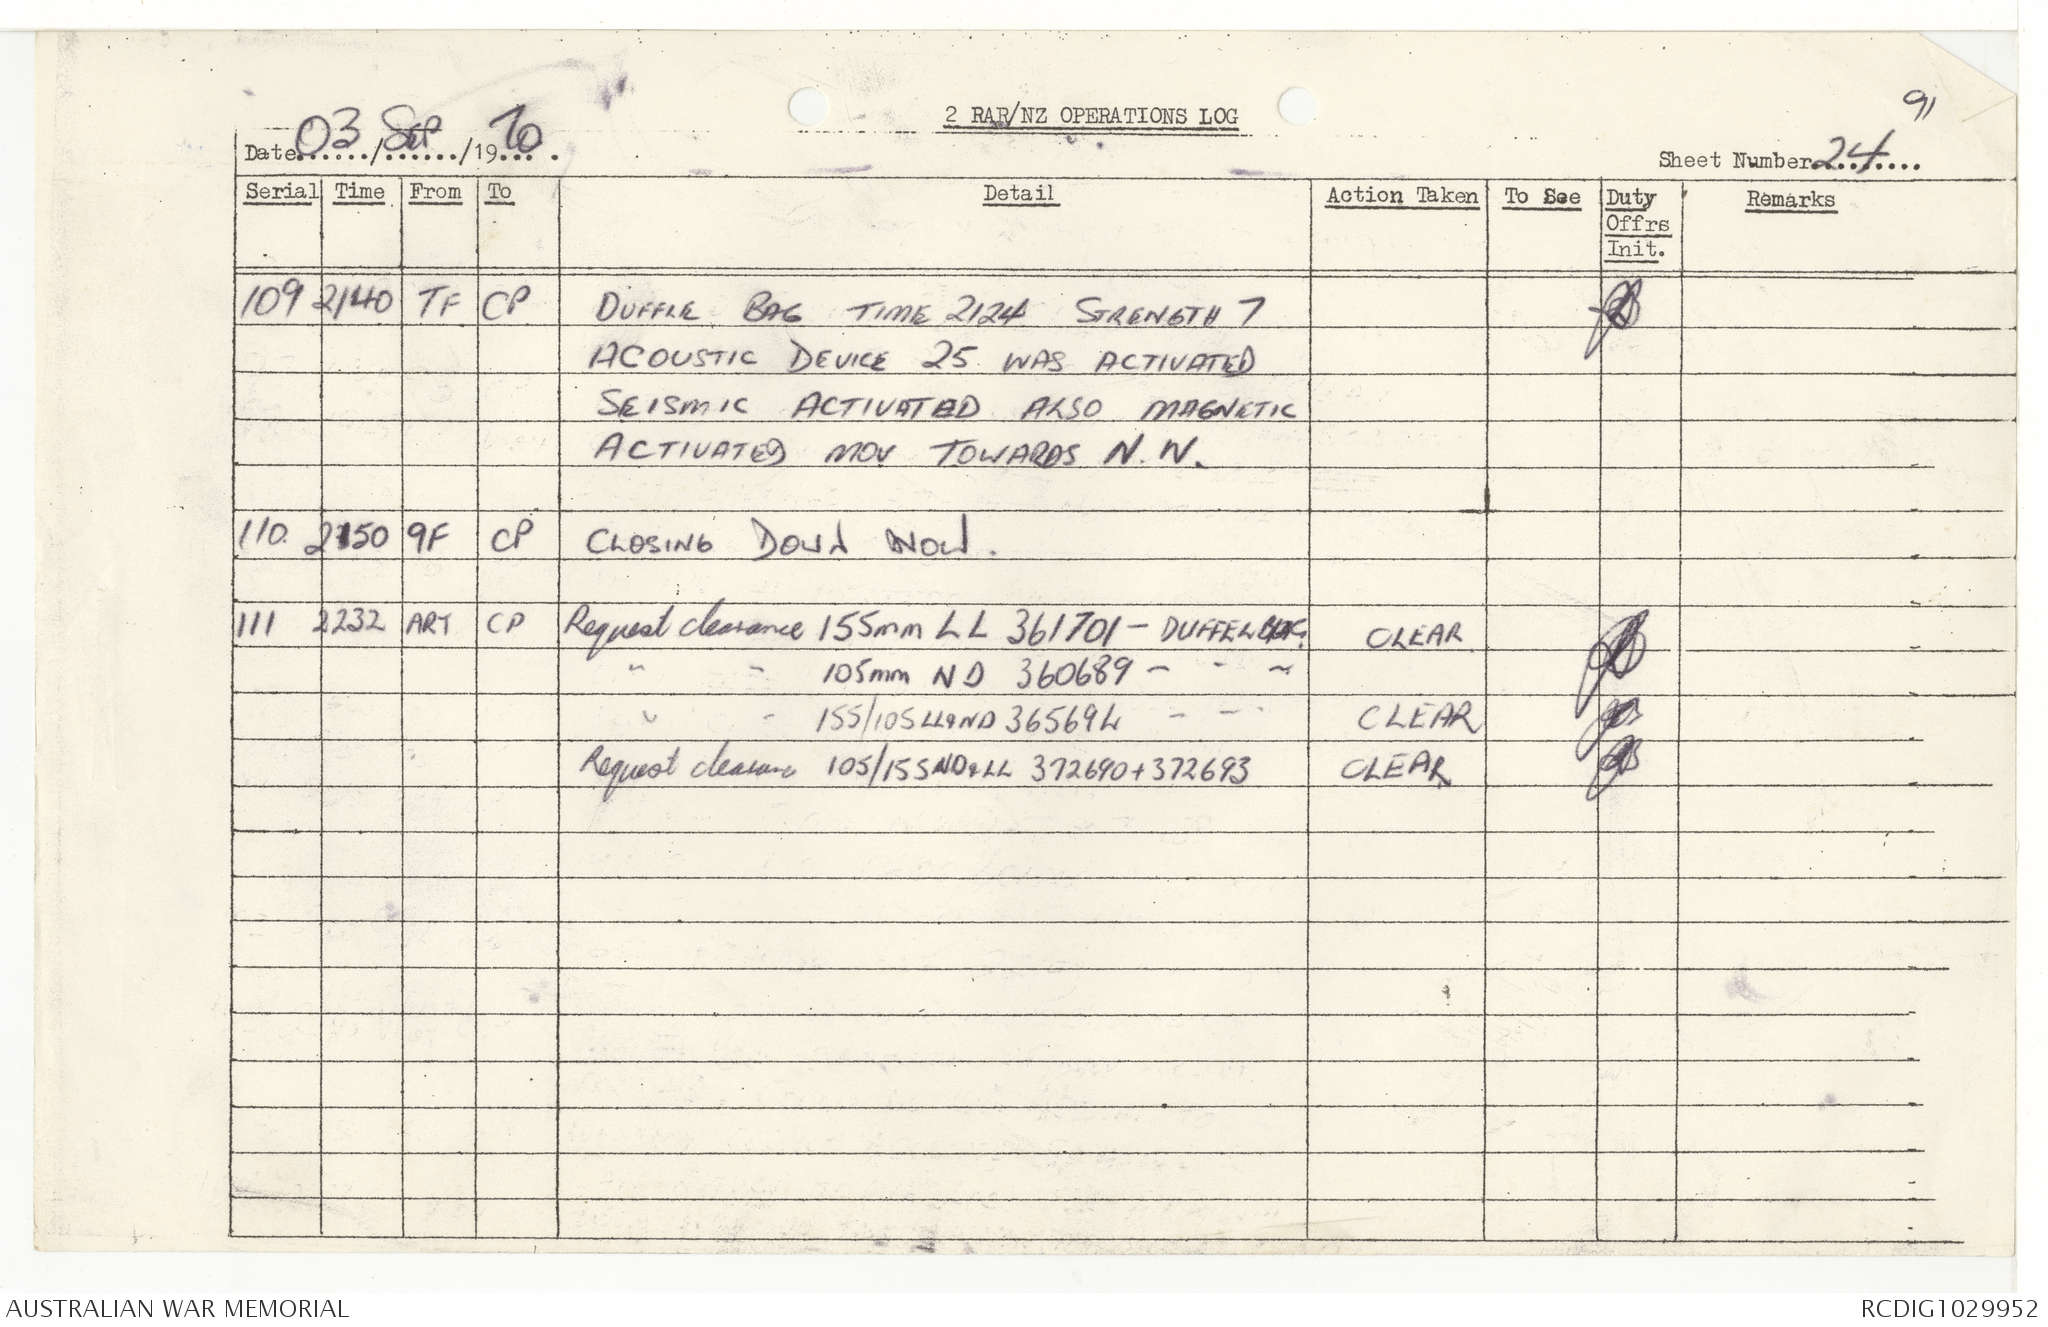 91
2 RAR/NZ OPERATIONS LOG
Date 03/Sep/1970.
Sheet Number 24
Serial Time From To Detail Action Taken To See Duty Offrs Init. Remarks
109 2140 TF CP DUFFLE BAG TIME 2124 STRENGTH 7
ACOUSTIC DEVICE 25 WAS ACTIVATED
SEISMIC ACTIVATED ALSO MAGNETIC
ACTIVATED MOV TOWARDS N.W.
110. 2150 9F CP CLOSING DOWN NOW.
111 2232 ART CP Request clearance 155mm LL 361701 - DUFFEL BAG. CLEAR
" " 105mm ND 360689 - " "
" " 155/105 LL&ND 365694 - " " CLEAR
Request clearance 105/155 ND&LL 372690+372693 CLEAR
AUSTRALIAN WAR MEMORIAL
RCDIG1029952